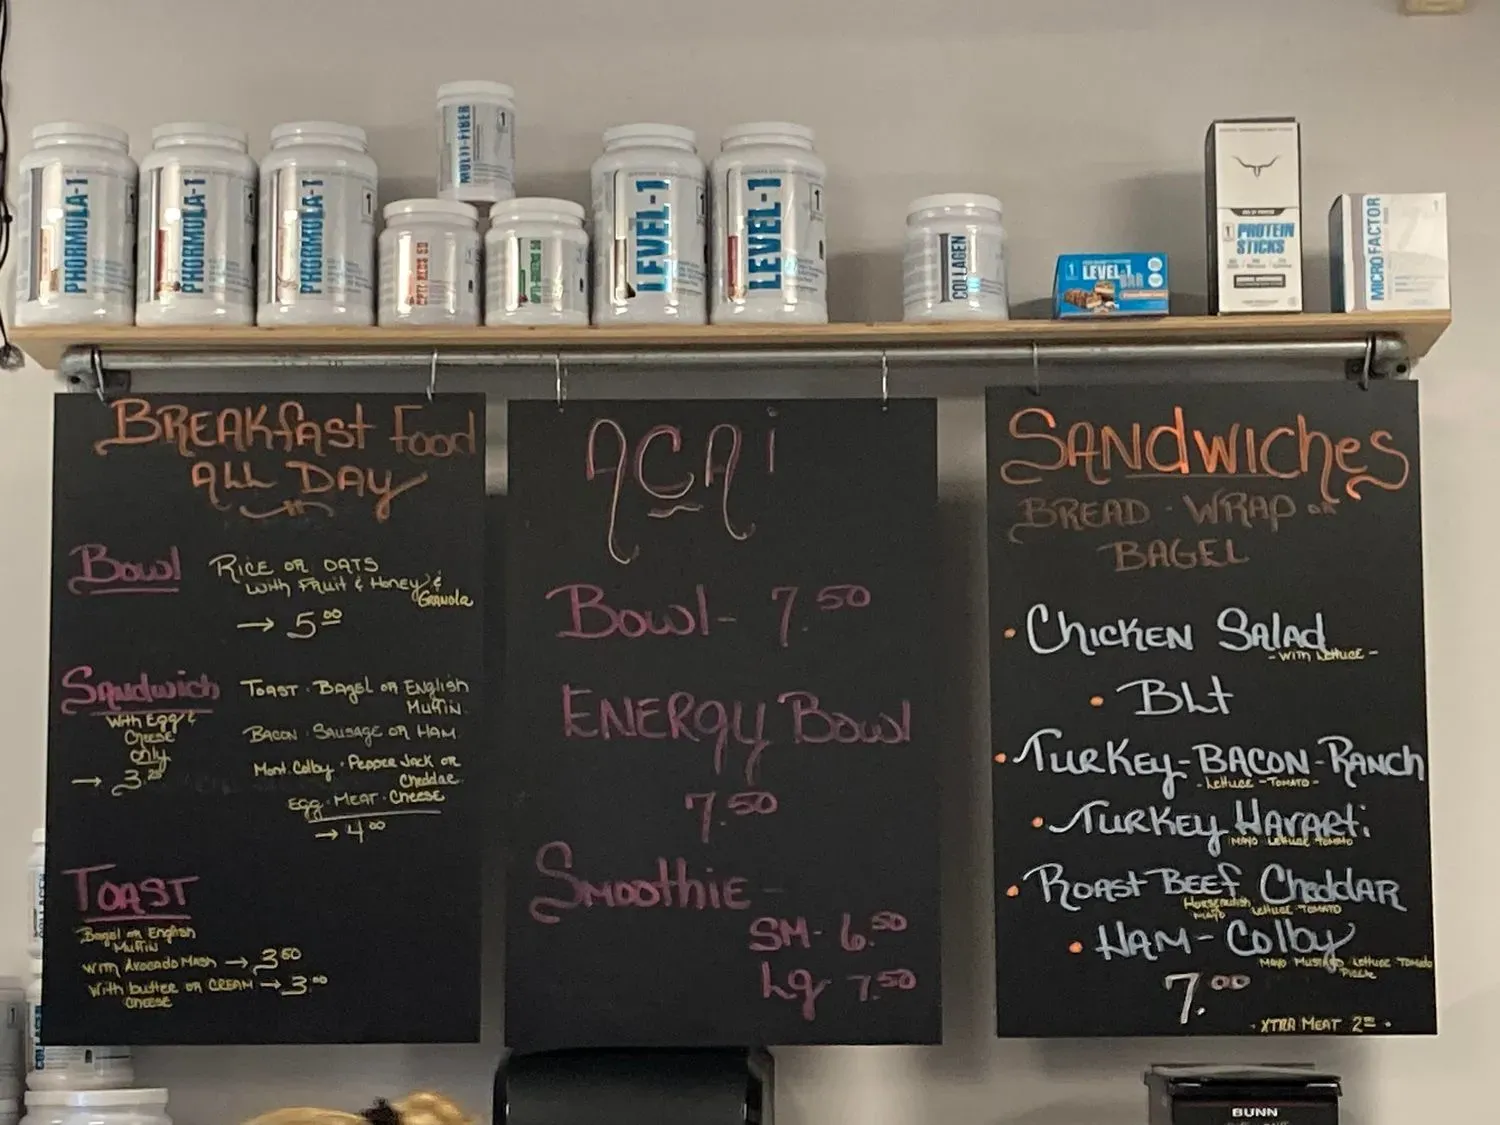 PHORMULA-1
PHORMULA-1
PHORMULA-1
MULTI-FIBER
OPTI-REDS 50
OPTI-GREENS 50
LEVEL-1
LEVEL-1
COLLAGEN
LEVEL-1
BAR
PROTEIN
STICKS
MICROFACTOR
BREAKfast Food
ALL DAY
Bowl
RICE OR OATS
with Fruit & Honey &
GRANOLA
→ 5.00
Sandwich
With Egg &
Cheese
only
→ 3.25
TOAST · Bagel OR English
Muffin
BACON · SAUSAGE OR HAM
Mont. Colby · Pepper Jack OR
Cheddar
Egg · MEAT · Cheese
→ 4.00
TOAST
Bagel or English
Muffin
with Avocado Mash → 3.50
with butter OR CREAM → 3.00
Cheese
ACAi
Bowl - 7.50
ENERGY Bowl
7.50
Smoothie -
SM - 6.50
Lg 7.50
SANdwiches
BREAD · WRAP OR
BAGEL
• Chicken Salad
- with lettuce -
• BLt
• TURKEY-BACON-RANCH
- Lettuce - TOMATO -
• TURKEY HAVARTi
MAYO LETTUCE TOMATO
• ROAST BEEF CheddAR
Horseradish
MAYO LETTUCE TOMATO
• HAM - Colby
MAYO MUSTARD Lettuce Tomato
Pickle
7.00
· XTRA MEAT 2.00 ·
COLLAGEN
BUNN